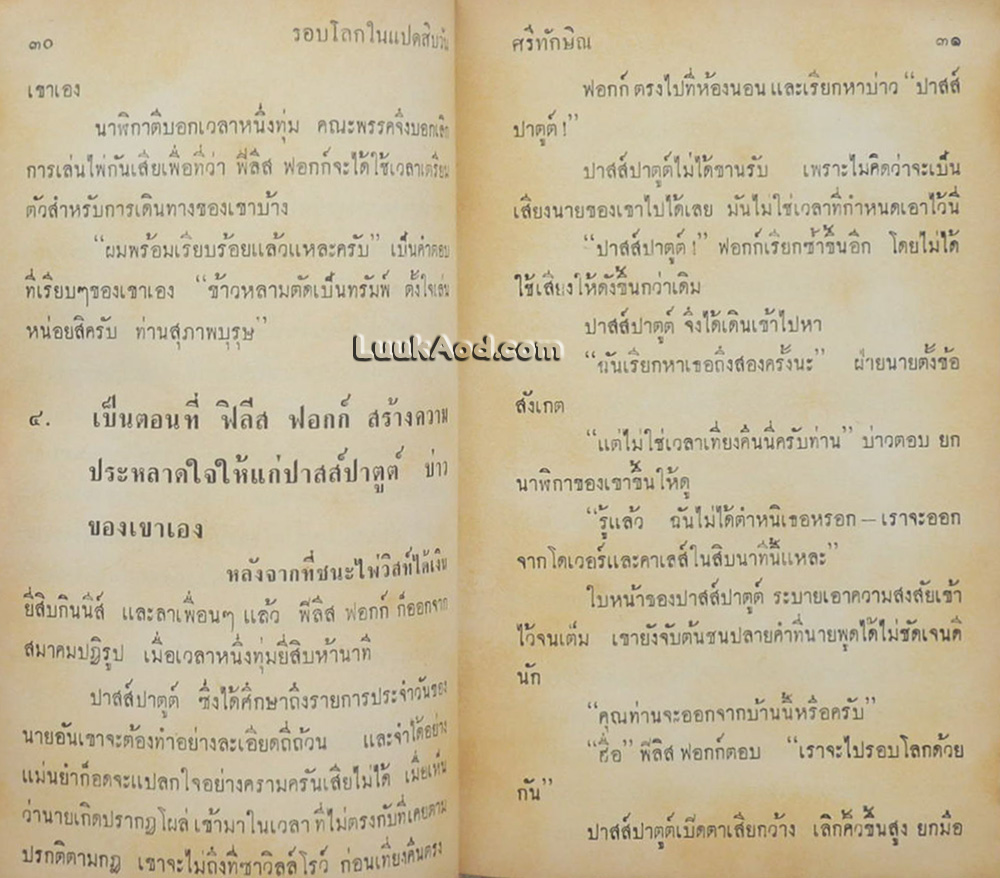 ๓๐
รอบโลกในแปดสิบวัน
เขาเอง
นาฬิกาตีบอกเวลาหนึ่งทุ่ม คณะพรรคจึงบอกเลิก
การเล่นไพ่กันเสียเพื่อที่ว่า ฟีลีส ฟอกก์จะได้ใช้เวลาเตรียม
ตัวสำหรับการเดินทางของเขาบ้าง
“ผมพร้อมเรียบร้อยแล้วแหละครับ” เป็นคำตอบ
ที่เรียบๆของเขาเอง “ข้าวหลามตัดเป็นทรัมพ์ ตั้งใจเล่น
หน่อยสิครับ ท่านสุภาพบุรุษ”
LuukAod.com
๔. เป็นตอนที่ ฟิลีส ฟอกก์ สร้างความ
ประหลาดใจให้แก่ปาสส์ปาตูต์ บ่าว
ของเขาเอง
หลังจากที่ชนะไพ่วิสท์ได้เงิน
ยี่สิบกินนีส์ และลาเพื่อนๆ แล้ว ฟีลีส ฟอกก์ ก็ออกจาก
สมาคมปฏิรูป เมื่อเวลาหนึ่งทุ่มยี่สิบห้านาที
ปาสส์ปาตูต์ ซึ่งได้ศึกษาถึงรายการประจำวันของ
นายอันเขาจะต้องทำอย่างละเอียดถี่ถ้วน และจำได้อย่าง
แม่นยำก็อดจะแปลกใจอย่างครามครันเสียไม่ได้ เมื่อเห็น
ว่านายเกิดปรากฏโผล่เข้ามาในเวลา ที่ไม่ตรงกับที่เคยตาม
ปรกติตามกฎ เขาจะไม่ถึงที่ซาวิลล์โรว์ ก่อนเที่ยงคืนตรง
ศรีทักษิณ
๓๑
ฟอกก์ ตรงไปที่ห้องนอน และเรียกหาบ่าว “ปาสส์
ปาตูต์!”
ปาสส์ปาตูต์ไม่ได้ขานรับ เพราะไม่คิดว่าจะเป็น
เสียงนายของเขาไปได้เลย มันไม่ใช่เวลาที่กำหนดเอาไว้นี่
“ปาสส์ปาตูต์!” ฟอกก์เรียกซ้ำขึ้นอีก โดยไม่ได้
ใช้เสียงให้ดังขึ้นกว่าเดิม
ปาสส์ปาตูต์ จึงได้เดินเข้าไปหา
“ฉันเรียกหาเธอถึงสองครั้งนะ” ฝ่ายนายตั้งข้อ
สังเกต
“แต่ไม่ใช่เวลาเที่ยงคืนนี่ครับท่าน” บ่าวตอบ ยก
นาฬิกาของเขาขึ้นให้ดู
“รู้แล้ว ฉันไม่ได้ตำหนิเธอหรอก – เราจะออก
จากโดเวอร์และคาเลส์ในสิบนาทีนี้แหละ”
ใบหน้าของปาสส์ปาตูต์ ระบายเอาความสงสัยเข้า
ไว้จนเต็ม เขายังจับต้นชนปลายคำที่นายพูดได้ไม่ชัดเจนดี
นัก
“คุณท่านจะออกจากบ้านนี้หรือครับ”
“ฮื่อ” ฟีลิส ฟอกก์ตอบ “เราจะไปรอบโลกด้วย
กัน”
ปาสส์ปาตูต์เบิดตาเสียกว้าง เลิกคิ้วขึ้นสูง ยกมือ